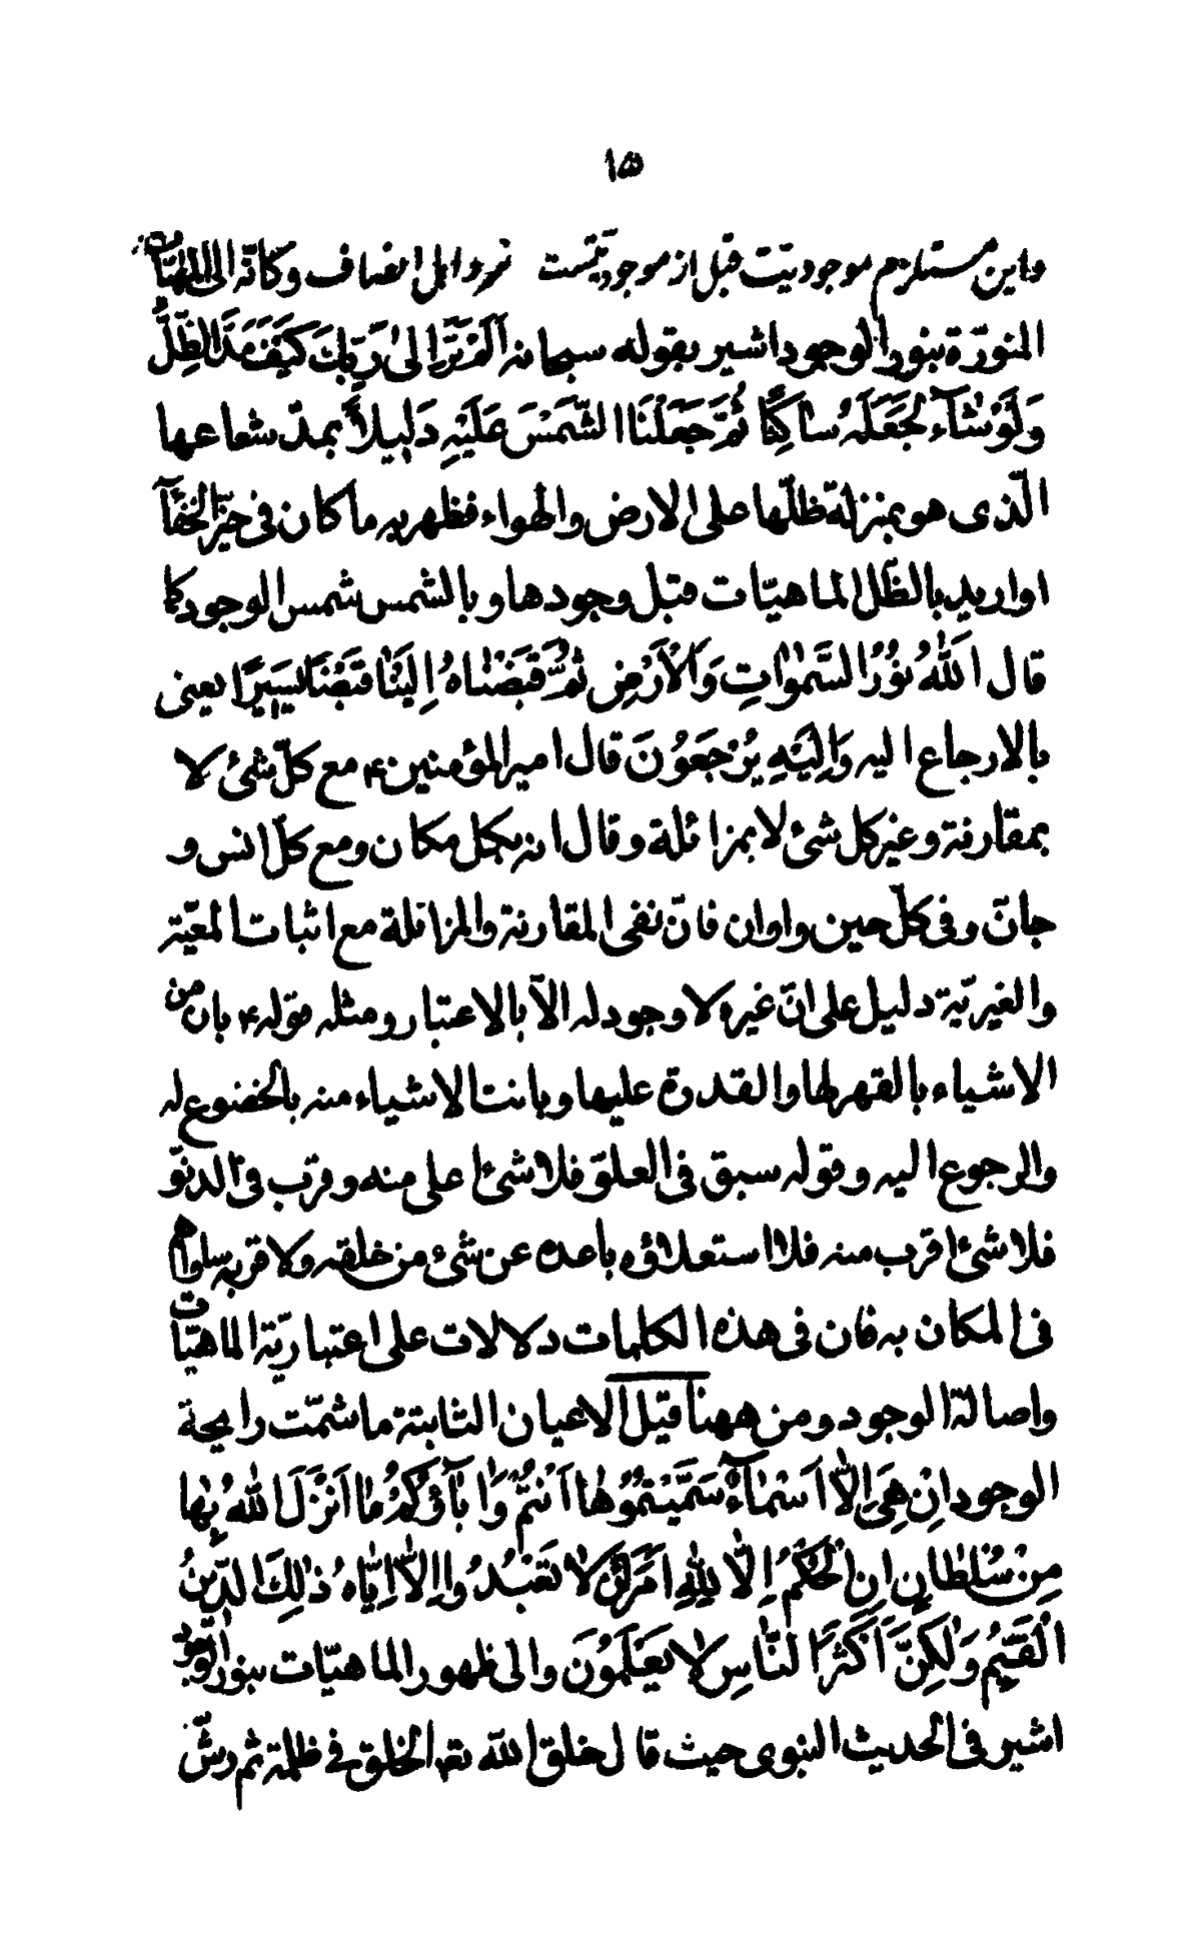 ١۵
واین مستلزم موجودیّت قبل از موجودیّتست نزد اهل انصاف وکانّه الی الماهیّات
المنوّرة بنور الوجود اشیر بقوله سبحانه اَلَمْ تَرَ اِلیٰ رَبِّكَ كَیْفَ مَدَّ الظِّلَّ
وَلَوْ شٰآءَ لَجَعَلَهُ سٰاكِنًا ثُمَّ جَعَلْنَا الشَّمْسَ عَلَیْهِ دَلیلاً بمدّ شعاعها
الّذی هو بمنزلة ظلّها علی الارض والهواء فظهر به ما کان فی حیّز الخفآء
او ارید بالظّل الماهیّات قبل وجودها و بالشمس شمس الوجود کما
قال اَللّٰهُ نُورُ السَّمٰوٰاتِ وَالْاَرْضِ ثُمَّ قَبَضْنٰاهُ اِلَیْنٰا قَبْضًا یَسیرًا یعنی
بالارجاع الیه وَاِلَیْهِ یُرْجَعُونَ قال امیر المؤمنین۴ مع کلّ شئ لا
بمقارنة وغیر کل شئ لا بمزائلة وقال انه بکل مکان ومع کلّ انس و
جانّ وفی کلّ حین واوان فانّ نفی المقارنة والمزائلة مع اثبات المعیّة
والغیریّة دلیل علی انّ غیره لا وجود له الاّ بالاعتبار ومثله قوله۴ بان من
الاشیاء بالقهر لها والقدرة علیها وبانت الاشیاء منه بالخضوع له
والرجوع الیه وقوله سبق فی العلوّ فلا شئ اعلی منه وقرب فی الدنوّ
فلا شئ اقرب منه فلا استعلاؤه باعده عن شئ من خلقه ولا قربه ساواهم
فی المکان به فان فی هذه الکلمات دلالات علی اعتباریّة الماهیّات
واصالة الوجود ومن ههنا قیل الاعیان الثابتة ما شمّت رایحة
الوجود اِنْ هِیَ اِلّٰا اَسْمٰآءٌ سَمَّیْتُمُوهٰا اَنْتُمْ وَاٰبٰآؤُكُمْ مٰا اَنْزَلَ اللّٰهُ بِهٰا
مِنْ سُلْطٰانٍ اِنِ الْحُكْمُ اِلّٰا لِلّٰهِ اَمَرَ اَنْ لٰا تَعْبُدُوا اِلّٰا اِیّٰاهُ ذٰلِكَ الدّینُ
الْقَیِّمُ وَلٰكِنَّ اَكْثَرَ النّٰاسِ لٰا یَعْلَمُونَ والی ظهور الماهیّات بنور الوجود
اشیر فی الحدیث النبوی حیث قال خلق اللّه تعٰ الخلق فی ظلمة ثم رشّ